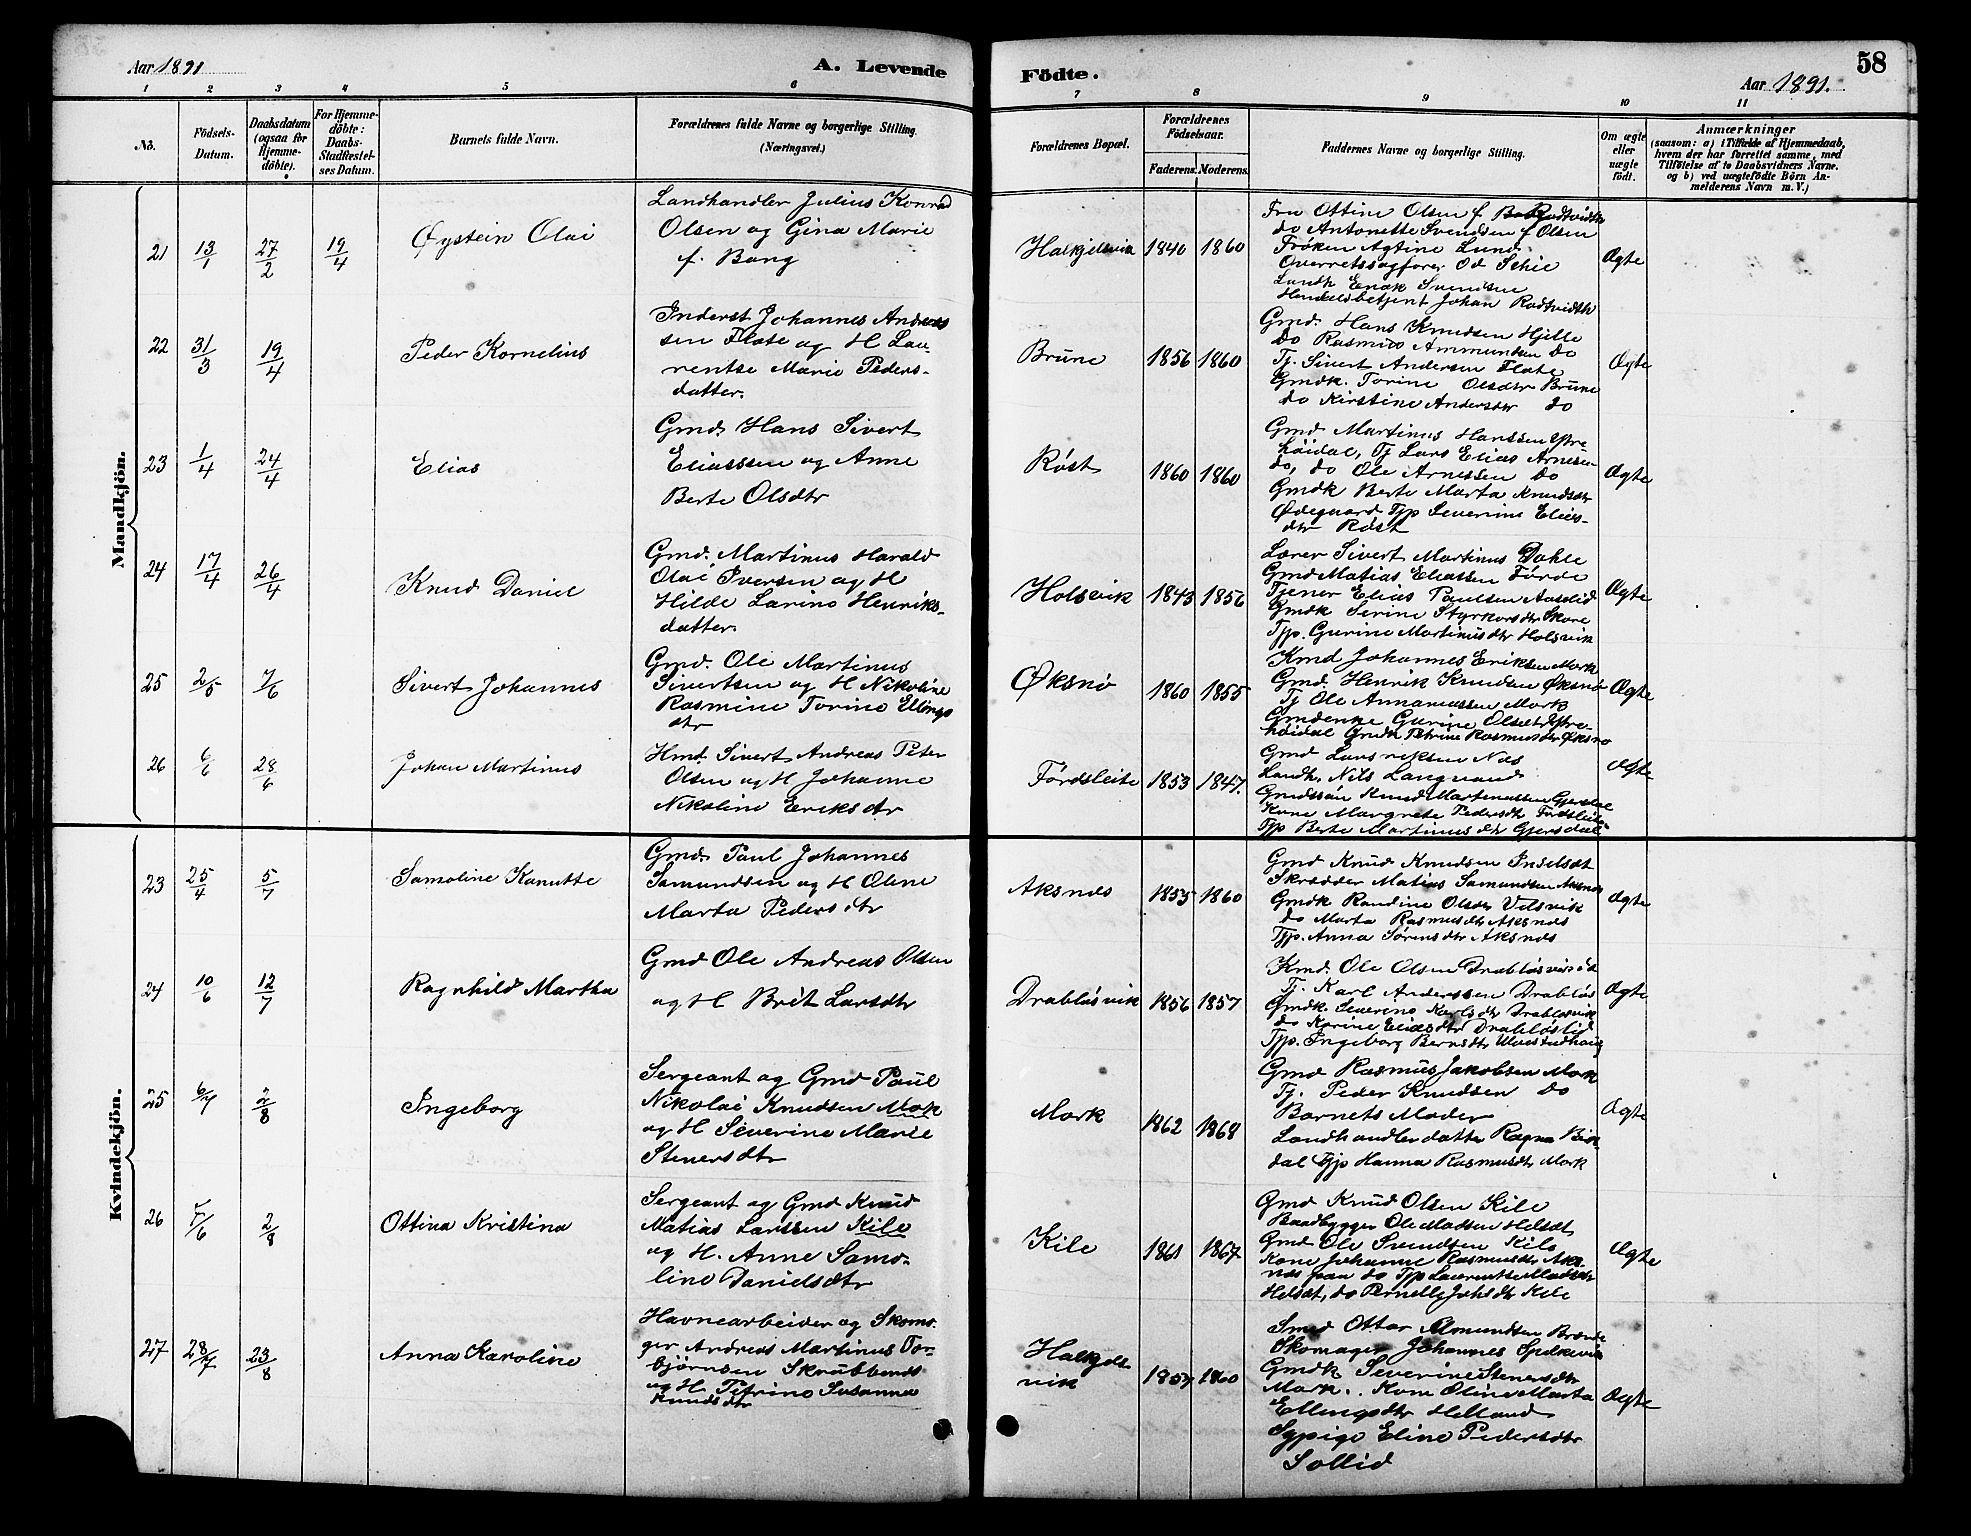 Aar 1891
A. Levende
Födte.
58
Aar 1891.
1 2 3 4 5 6 7 8 9 10 11
No.
Födsels-
Datum.
Daabsdatum
(ogsaa för
Hjemme-
döbte).
For Hjemme-
döbte:
Daabs-
Stadfæstel-
ses Datum.
Barnets fulde Navn.
Forældrenes fulde Navne og borgerlige Stilling.
(Næringsvei.)
Forældrenes Bopæl.
Forældrenes
Födselsaar.
Faderens. Moderens.
Faddernes Navne og borgerlige Stilling.
Om ægte
eller
uægte
födt.
Anmærkninger
(saasom: a) i Tilfælde af Hjemmedaab,
hvem der har forrettet samme, med
Tilföielse af to Daabsvidners Navne,
og b) ved uægtefödte Börn An-
melderens Navn m. V.)
Mandkjön.
21 13/1 27/2 19/4 Øystein Olai
Landhandler Julius Konrad
Olsen og Gina Marie
f. Bang
1840 1860
Fru Ottine Olsen f.
do Antonette Svendsen f Olsen
Frøken Agtine Lund
Overretssagfører Od Schie
Landh Enok Svendsen
Handelsbetjent Johan Rodtvidth
Ægte
22 31/3 19/4 Peder Kornelius
Inderst Johannes Andreas
sen Flote og H Lau-
rentse Marie Peders-
datter.
Brune 1856 1860
Gmd. Hans Knudsen Hjille
do Rasmus Ammundsen do
Tj. Sivert Andersen Flote
Gmdk. Torine Olsdtr Brune
do Kirstine Andersdtr do
Ægte
23 1/4 24/4 Elias
Gmd. Hans Sivert
Eliasssen og Anne
Berte Olsdtr
Røst 1860 1860
Gmd Martinus Hanssen Ystre
høidal, Tj Lars Elias Arnesen
do, do Ole Arnessen do
Gmdk Berte Marta Knudsdtr
Ødegaard Tjp Severine Elias-
dtr Røst
Ægte
24 17/4 26/4 Knud Daniel
Gmd. Martinus Harald
Olai Iversen og H
Hilde Larine Henriks-
datter.
Holsvik 1843 1856
Lærer Sivert Martinus Dahle
Gmd Matias Eliassen Førde
Tjener Elias Paulsen Aaslid
Gmdk Serine Styrkorsdtr Skore
Tjp. Gurine Martinusdtr Holsvik
Ægte
25 2/5 7/6 Sivert Johannes
Gmd. Ole Martinus
Sivertsen og H Nikoline
Rasmine Torine Ellings
dtr
Øksnø 1860 1855
Kmd Johannes Eriksen Mork
Gmd. Henrik Knudsen Øksnø
Tj Ole Annanassen Mork
Gmdenke Gurine Olsdtr Ystre-
høidal Gmdk Petrine Rasmusdtr Øksnø
Ægte
26 6/6 28/6 Johan Martinus
Hmd. Sivert Andreas Peter
Olsen og H Johanne
Nikoline Eeriksdtr
Førdsleite 1853 1847.
Gmd Lars Næs
Landh. Nils Langvand
Gmdssøn Knud Martinussen Gjersdal
Kone Margrete Pedersdtr Førdsleite
Tjp Berte Martinusdtr Gjersdal
Ægte
Kvindekjön.
23 25/4 5/7 Samoline Kanutte
Gmd. Paul Johannes
Samundsen og H Oline
Marta Pedersdtr
Aksnæs 1855 1860
Gmd Knud Knudsen Indselset
Skrædder Matias Samundsen Aksnæs
Gmdk Randine Olsdtr Velsvik
do Marta Rasmusdtr Aksnæs
Tjp. Anna Sørensdtr Aksnæs
Ægte
24 10/6 12/7 Ragnhild Martha
Gmd Ole Andreas Olsen
og H Brit Larsdtr
Drabløsvik 1856 1857
Kmd. Ole Olsen
Tj. Karl Anderssen Drabløs
Gmdk. Severine Karlsdtr Drabløsvik
do Karine Eliasdtr Drabløslid
Tjp. Ingeborg Berntsdtr
Ægte
25 2/8 Ingeborg
Sergeant og Gmd Paul
Nikolai Knudsen Mork
og H Severine Marie
Stenersdtr
Mork 1862 1868
Gmd Rasmus Jakobsen Mork
Tj. Peder Knudsen do
Barnets Moder
Landhandlerdatter Ragna Birk-
dal Tjp Hanna Rasmusdtr Mork
Ægte
26 7/6 2/8 Ottina Kristina
Sergeant og Gmd Knud
Matias Larssen Kile
og H. Anne Samo-
line Danielsdtr
Kile 1861 1867
Gmd Knud Olsen Kile
Baadbygger Ole Madsen Helset
Gmd Ole Svendsen Kile
Kone Johanne Rasmusdtr Aks-
næs paa do Tjp Laurentse Madsdtr
Helset, do Pernelle Johsdtr Kile
Ægte
27 28/7 23/8 Anna Karoline
Havnearbeider og Skoma-
ger Andreas Martinus Tor-
bjørnsen Skrubbend
og H. Petrine Susanna
Knudsdtr
1857 1860
Smed Ottar Amundsen
Skomager Johannes Spilkevik
Gmdk Severine Stenersdtr
Mork. Kone Oline Marta
Ellingsdtr Helland
Sypige Eline Pedersdtr
Sollid
Ægte